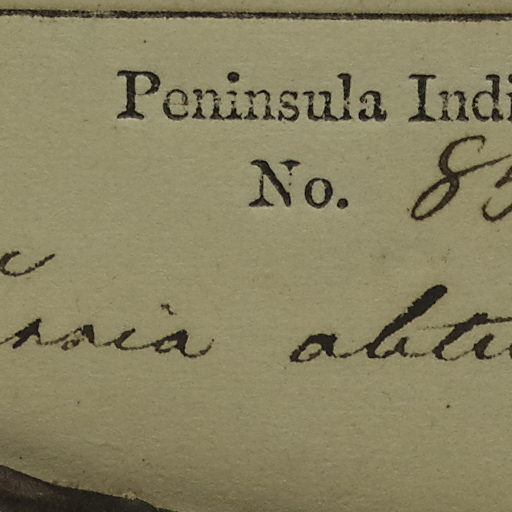 Peninsula Indi
No. 85
ssia abtu